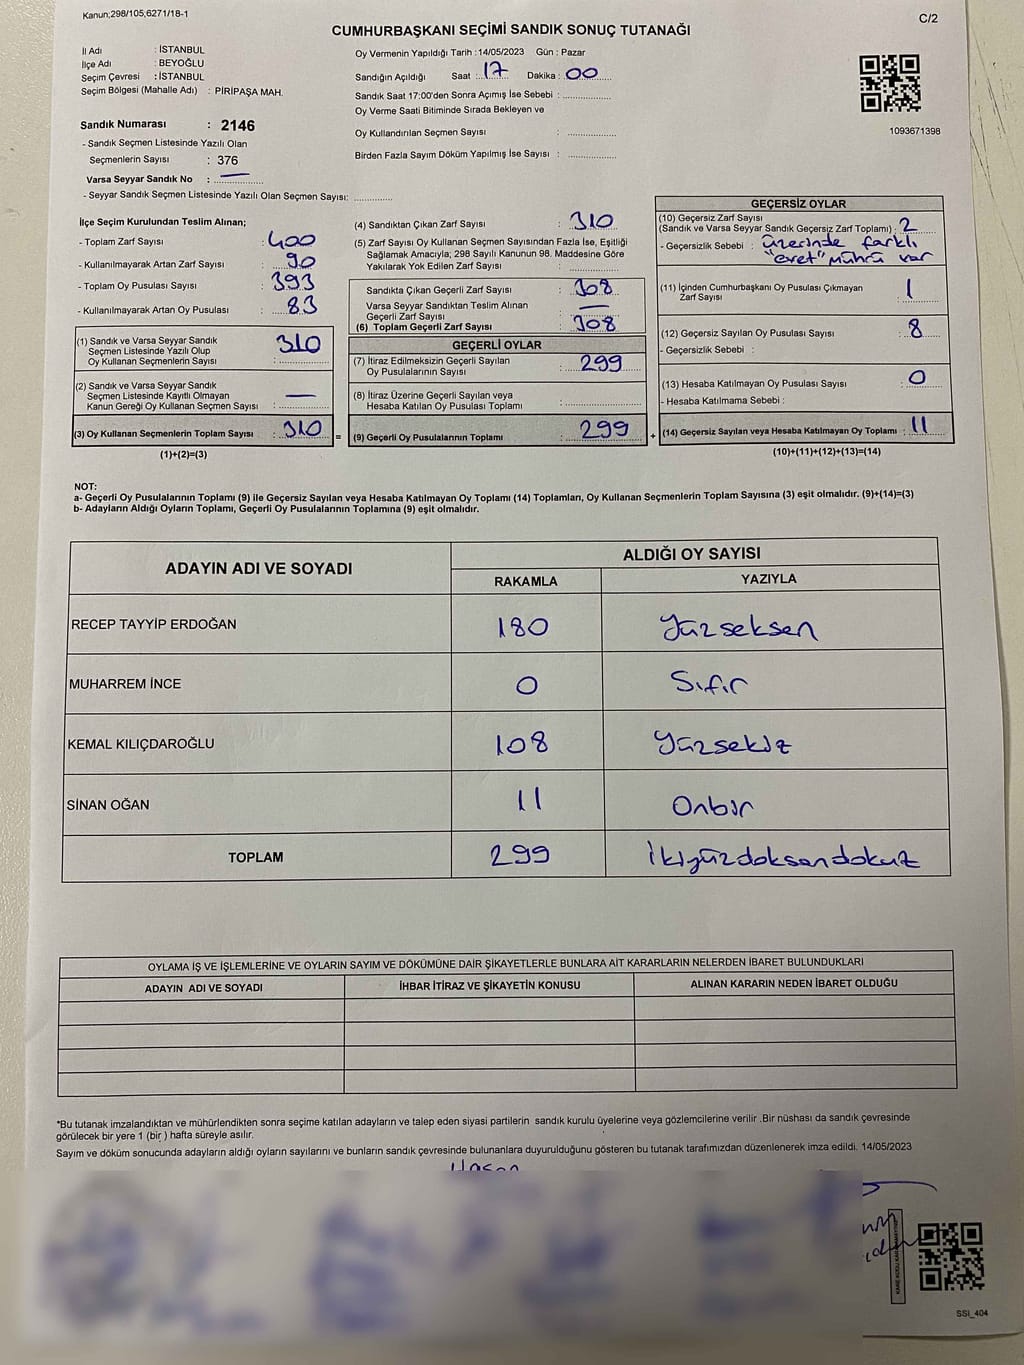 Kanun;298/105;6271/18-1
C/2
CUMHURBAŞKANI SEÇİMİ SANDIK SONUÇ TUTANAĞI
İl Adı : İSTANBUL
İlçe Adı : BEYOĞLU
Seçim Çevresi : İSTANBUL
Seçim Bölgesi (Mahalle Adı) : PİRİPAŞA MAH.
Sandık Numarası : 2146
- Sandık Seçmen Listesinde Yazılı Olan
Seçmenlerin Sayısı : 376
Varsa Seyyar Sandık No : —
- Seyyar Sandık Seçmen Listesinde Yazılı Olan Seçmen Sayısı:
Oy Vermenin Yapıldığı Tarih : 14/05/2023 Gün : Pazar
Sandığın Açıldığı Saat : 17 Dakika : 00
Sandık Saat 17:00'den Sonra Açımış İse Sebebi :
Oy Verme Saati Bitiminde Sırada Bekleyen ve
Oy Kullandırılan Seçmen Sayısı :
Birden Fazla Sayım Döküm Yapılmış İse Sayısı :
1093671398
İlçe Seçim Kurulundan Teslim Alınan;
- Toplam Zarf Sayısı : 400
- Kullanılmayarak Artan Zarf Sayısı : 90
- Toplam Oy Pusulası Sayısı : 393
- Kullanılmayarak Artan Oy Pusulası : 83
(1) Sandık ve Varsa Seyyar Sandık
Seçmen Listesinde Yazılı Olup
Oy Kullanan Seçmenlerin Sayısı : 310
(2) Sandık ve Varsa Seyyar Sandık
Seçmen Listesinde Kayıtlı Olmayan
Kanun Gereği Oy Kullanan Seçmen Sayısı : —
(3) Oy Kullanan Seçmenlerin Toplam Sayısı : 310
(1)+(2)=(3)
(4) Sandıktan Çıkan Zarf Sayısı : 310
(5) Zarf Sayısı Oy Kullanan Seçmen Sayısından Fazla İse, Eşitliği
Sağlamak Amacıyla; 298 Sayılı Kanunun 98. Maddesine Göre
Yakılarak Yok Edilen Zarf Sayısı :
Sandıkta Çıkan Geçerli Zarf Sayısı : 308
Varsa Seyyar Sandıktan Teslim Alınan
Geçerli Zarf Sayısı : —
(6) Toplam Geçerli Zarf Sayısı : 308
GEÇERLİ OYLAR
(7) İtiraz Edilmeksizin Geçerli Sayılan
Oy Pusulalarının Sayısı : 299
(8) İtiraz Üzerine Geçerli Sayılan veya
Hesaba Katılan Oy Pusulası Toplamı :
= (9) Geçerli Oy Pusulalarının Toplamı : 299
GEÇERSİZ OYLAR
(10) Geçersiz Zarf Sayısı
(Sandık ve Varsa Seyyar Sandık Geçersiz Zarf Toplamı) : 2
- Geçersizlik Sebebi : üzerinde farklı
"evet" mührü var
(11) İçinden Cumhurbaşkanı Oy Pusulası Çıkmayan
Zarf Sayısı : 1
(12) Geçersiz Sayılan Oy Pusulası Sayısı : 8
- Geçersizlik Sebebi :
(13) Hesaba Katılmayan Oy Pusulası Sayısı : 0
- Hesaba Katılmama Sebebi :
+ (14) Geçersiz Sayılan veya Hesaba Katılmayan Oy Toplamı : 11
(10)+(11)+(12)+(13)=(14)
NOT:
a- Geçerli Oy Pusulalarının Toplamı (9) ile Geçersiz Sayılan veya Hesaba Katılmayan Oy Toplamı (14) Toplamları, Oy Kullanan Seçmenlerin Toplam Sayısına (3) eşit olmalıdır. (9)+(14)=(3)
b- Adayların Aldığı Oyların Toplamı, Geçerli Oy Pusulalarının Toplamına (9) eşit olmalıdır.
ADAYIN ADI VE SOYADI
ALDIĞI OY SAYISI
RAKAMLA YAZIYLA
RECEP TAYYİP ERDOĞAN 180 Yüzseksen
MUHARREM İNCE 0 Sıfır
KEMAL KILIÇDAROĞLU 108 Yüzsekiz
SİNAN OĞAN 11 Onbir
TOPLAM 299 İkiyüzdoksandokuz
OYLAMA İŞ VE İŞLEMLERİNE VE OYLARIN SAYIM VE DÖKÜMÜNE DAİR ŞİKAYETLERLE BUNLARA AİT KARARLARIN NELERDEN İBARET BULUNDUKLARI
ADAYIN ADI VE SOYADI İHBAR İTİRAZ VE ŞİKAYETİN KONUSU ALINAN KARARIN NEDEN İBARET OLDUĞU
*Bu tutanak imzalandıktan ve mühürlendikten sonra seçime katılan adayların ve talep eden siyasi partilerin sandık kurulu üyelerine veya gözlemcilerine verilir .Bir nüshası da sandık çevresinde
görülecek bir yere 1 (bir ) hafta süreyle asılır.
Sayım ve döküm sonucunda adayların aldığı oyların sayılarını ve bunların sandık çevresinde bulunanlara duyurulduğunu gösteren bu tutanak tarafımızdan düzenlenerek imza edildi. 14/05/2023
Hasan
SSI_404